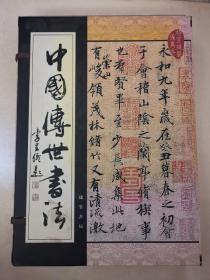 中國傳世書法
線裝書局
永和九年歲在癸丑暮春之初會
于會稽山陰之蘭亭脩禊事
也羣賢畢至少長咸集此地
有崇山峻領茂林脩竹又有清流激